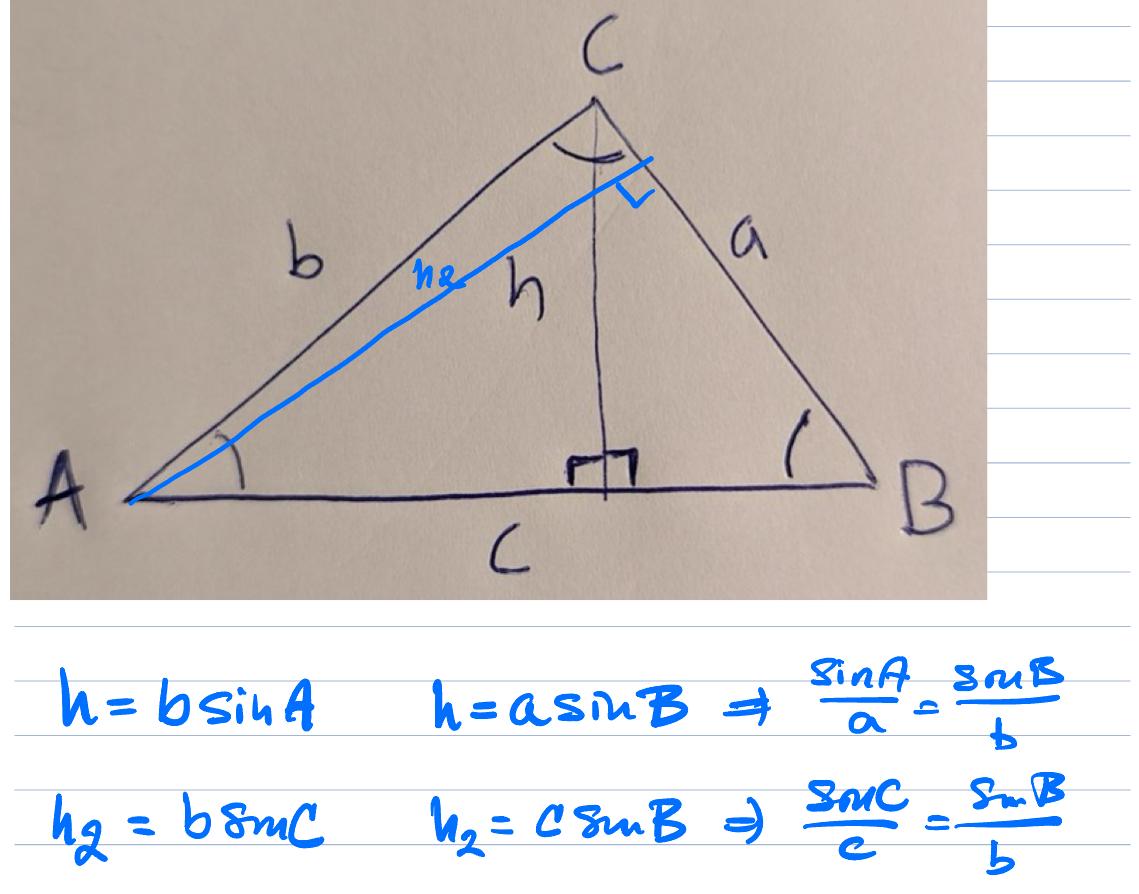 C
b
a
h2
h
A
B
C
h = b sin A h = a sin B ⇒ sin A / a = sin B / b
h2 = b sin C h2 = c sin B ⇒ sin C / c = sin B / b